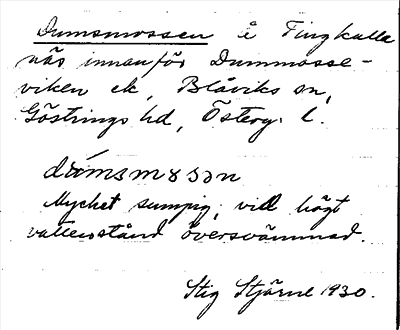 Dumsmossen å Fingkulla
näs innanför Dummosse-
viken ek, Blåviks sn,
Göstrings hd, Österg. l.
dúmsmosən
Mycket sumpig, vid högt
vattenstånd översvämmad.
Stig Stjärne 1930.